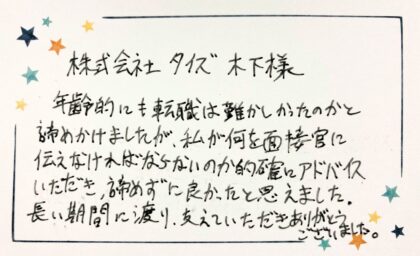 株式会社 タイズ 木下様
年齢的にも転職は難かしかったのかと
諦めかけましたが、私が何を面接官に
伝えなければならないのか的確にアドバイス
いただき、諦めずに良かったと思えました。
長い期間に渡り、支えていただきありがとう
ございました。